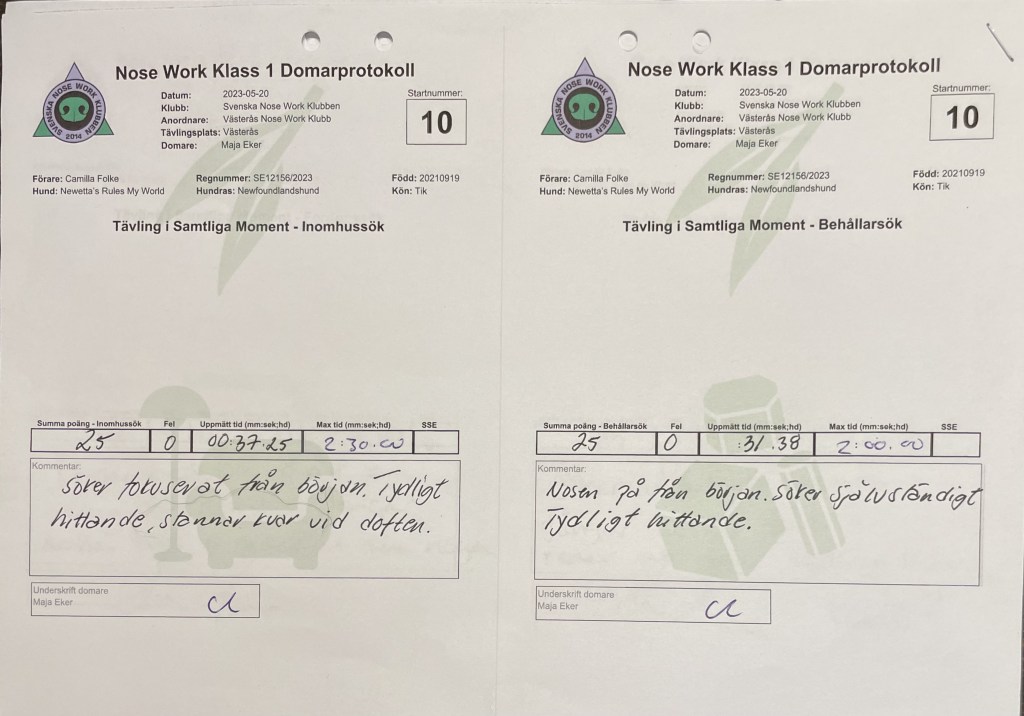 Nose Work Klass 1 Domarprotokoll
SVENSKA NOSE WORK KLUBBEN
2014
Datum: 2023-05-20
Klubb: Svenska Nose Work Klubben
Anordnare: Västerås Nose Work Klubb
Tävlingsplats: Västerås
Domare: Maja Eker
Startnummer:
10
Förare: Camilla Folke
Hund: Newetta's Rules My World
Regnummer: SE12156/2023
Hundras: Newfoundlandshund
Född: 20210919
Kön: Tik
Tävling i Samtliga Moment - Inomhussök
Summa poäng - Inomhussök Fel Uppmätt tid (mm:sek;hd) Max tid (mm:sek;hd) SSE
25 0 00:37.25 2:30.00
Kommentar:
Söker fokuserat från början. Tydligt
hittande, stannar kvar vid doften.
Underskrift domare
Maja Eker
Nose Work Klass 1 Domarprotokoll
SVENSKA NOSE WORK KLUBBEN
2014
Datum: 2023-05-20
Klubb: Svenska Nose Work Klubben
Anordnare: Västerås Nose Work Klubb
Tävlingsplats: Västerås
Domare: Maja Eker
Startnummer:
10
Förare: Camilla Folke
Hund: Newetta's Rules My World
Regnummer: SE12156/2023
Hundras: Newfoundlandshund
Född: 20210919
Kön: Tik
Tävling i Samtliga Moment - Behållarsök
Summa poäng - Behållarsök Fel Uppmätt tid (mm:sek;hd) Max tid (mm:sek;hd) SSE
25 0 :31.38 2:00.00
Kommentar:
Nosen på från början. Söker självständigt
Tydligt hittande.
Underskrift domare
Maja Eker